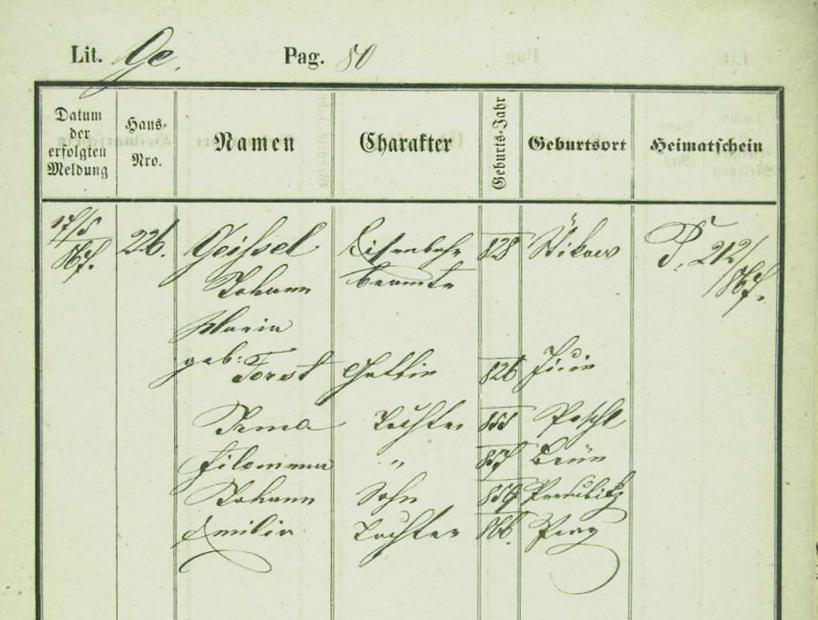 Lit. Ge. Pag. 80
Datum der erfolgten Meldung
Haus-Nro.
Namen
Charakter
Geburts-Jahr
Geburtsort
Heimatschein
17/5 867. 226. Geißel Eisenbahn 828 P. 212/867.
Johann beamte
Maria
geb: Forst Gattin 826 Jičin
Irma Tochter 855
Filomena " 857 Brünn
Johann Sohn 859 Pardubitz
Emilie Tochter 866. Prag